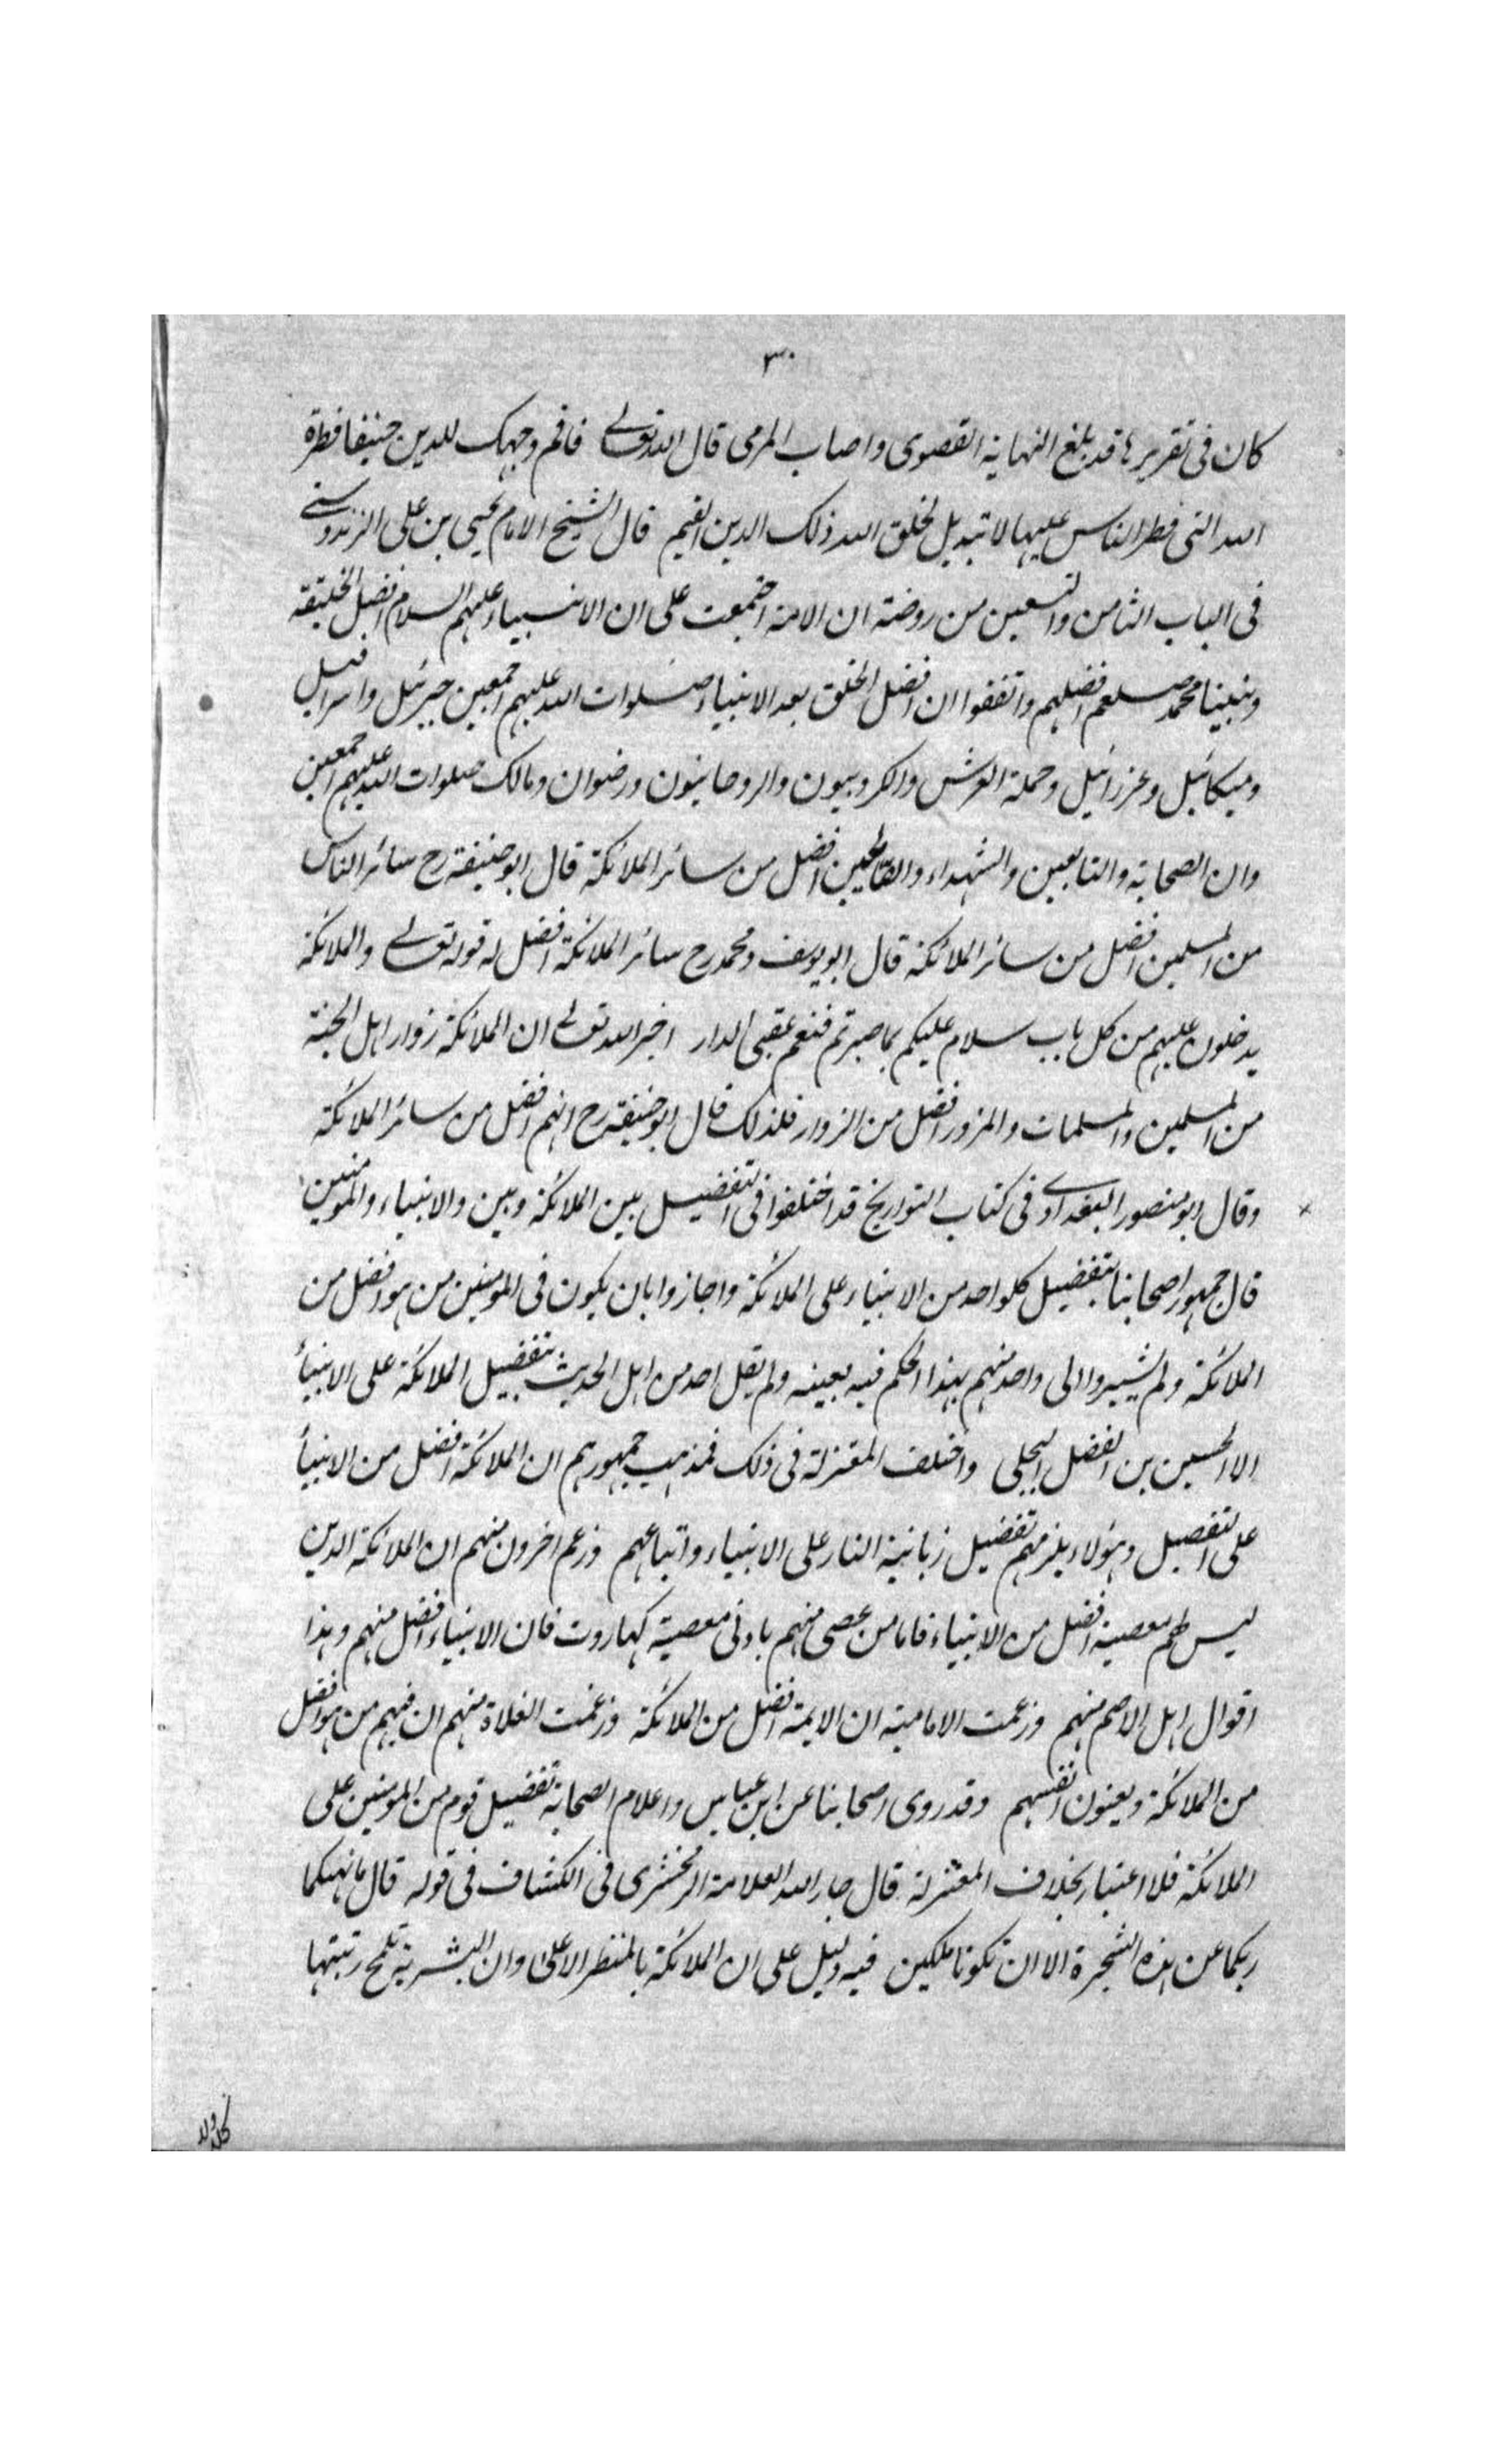 ٣٠
كان فى تقريرها قد بلغ النهاية القصوى واصاب المرمى قال الله تعالى فاقم وجهك للدين حنيفا فطرة
الله التى فطر الناس عليها لا تبديل لخلق الله ذلك الدين القيم قال الشيخ الامام يحيى بن على الزندوسى
فى الباب الثامن والتسعين من روضته ان الامة اجتمعت على ان الانبياء عليهم السلام افضل الخليقة
ونبينا محمد صلعم افضلهم واتفقوا ان افضل الخلق بعد الانبياء صلوات الله عليهم اجمعين جبرئيل واسرافيل
وميكائيل وعزرائيل وحملة العرش والكروبيون والروحانيون ورضوان ومالك صلوات الله عليهم اجمعين
وان الصحابة والتابعين والشهداء والصالحين افضل من سائر الملائكة قال ابو حنيفة رح سائر الناس
من المسلمين افضل من سائر الملائكة قال ابو يوسف ومحمد رح سائر الملائكة افضل له قوله تعالى والملائكة
يدخلون عليهم من كل باب سلام عليكم بما صبرتم فنعم عقبى الدار اخبر الله تعالى ان الملائكة زوار اهل الجنة
من المسلمين والمسلمات والمزور افضل من الزوار فلذلك قال ابو حنيفة رح انهم افضل من سائر الملائكة
وقال ابو منصور البغدادى فى كتاب التواريخ قد اختلفوا فى التفضيل بين الملائكة وبين والانبياء والمومنين
قال جمهور اصحابنا بتفضيل كلواحد من الانبياء على الملائكة واجازوا بان يكون فى المومنين من هو افضل من
الملائكة ولم يشيروا الى واحد منهم بهذا الحكم فيه بعينه ولم يقل احد من اهل الحديث بتفضيل الملائكة على الانبياء
الا الحسين بن الفضل البجلى واختلف المعتزلة فى ذلك فمذهب جمهورهم ان الملائكة افضل من الانبياء
على التفصيل وهؤلاء يلزمهم تفضيل زبانية النار على الانبياء واتباعهم وزعم اخرون منهم ان الملائكة الذين
ليس لهم معصية افضل من الانبياء فاما من عصى منهم بادنى معصية كهاروت فان الانبياء افضل منهم وهذا
اقوال اهل الاصم منهم وزعمت الامامية ان الايمة افضل من الملائكة وزعمت الغلاة منهم ان فيهم من هو افضل
من الملائكة ويعنون انفسهم وقد روى اصحابنا عن ابن عباس واعلام الصحابة تفضيل قوم من المومنين على
الملائكة فلا اعتبار بخلاف المعتزلة قال جار الله العلامة الزمخشرى فى الكشاف فى قوله قال ما نهيكما
ربكما عن هذه الشجرة الا ان تكونا ملكين فيه دليل على ان الملائكة بالمنظر الاعلى وان البشرية تلمح رتبتها